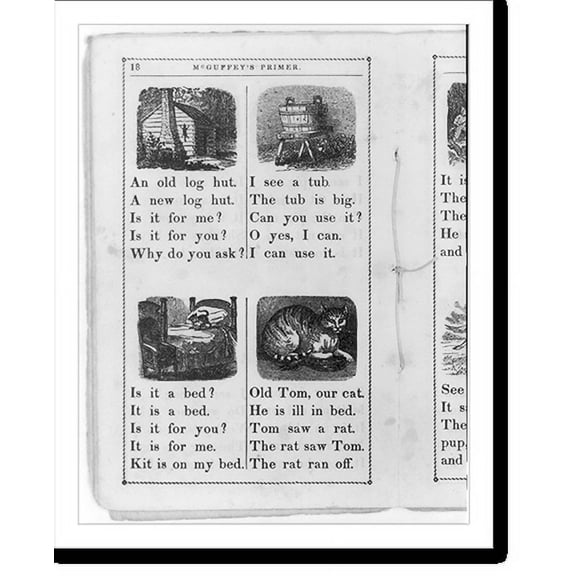 18 McGUFFEY'S PRIMER.
An old log hut.
A new log hut.
Is it for me?
Is it for you?
Why do you ask?
I see a tub.
The tub is big.
Can you use it?
O yes, I can.
I can use it.
Is it a bed?
It is a bed.
Is it for you?
It is for me.
Kit is on my bed.
Old Tom, our cat.
He is ill in bed.
Tom saw a rat.
The rat saw Tom.
The rat ran off.
It
The
The
He
and
See
It
The
pup,
and